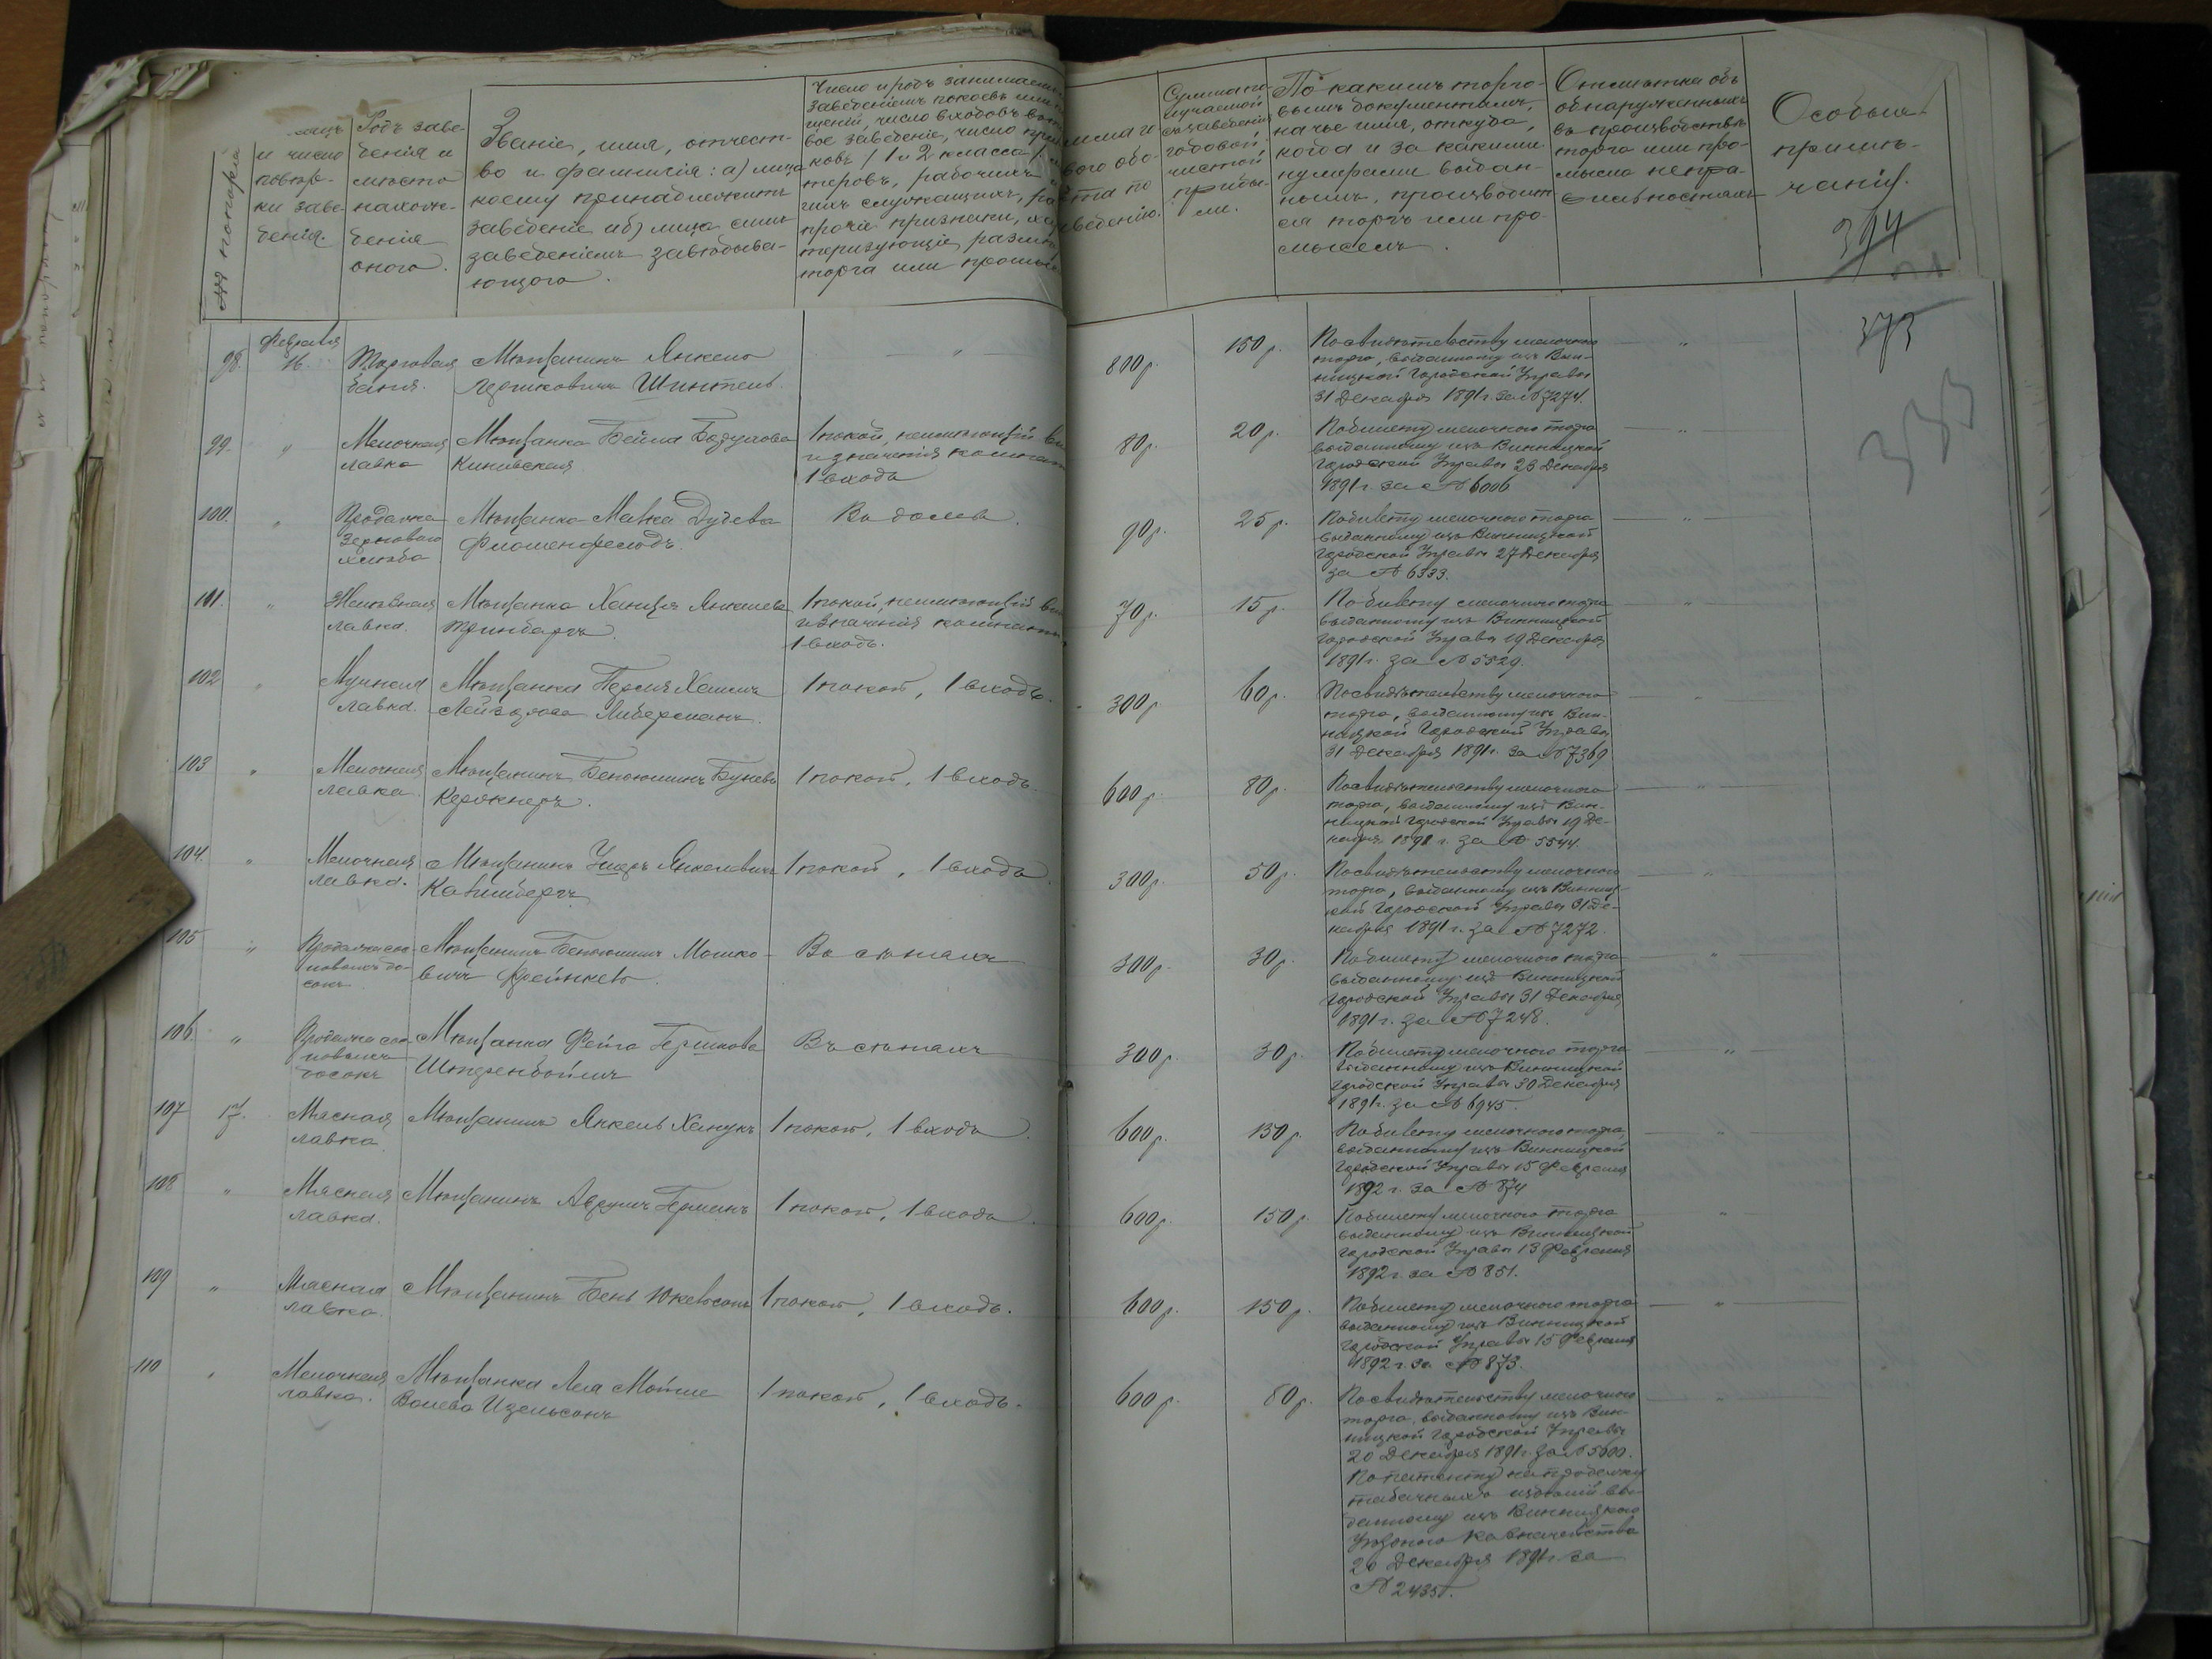 №№ попоряд
и число
повѣр-
ки заве-
денія.
Родъ заве-
денія и
мѣсто
нахож-
денія
оного.
Званіе, имя, отчест-
во и фамилія: а) лица
коему принадлежитъ
заведеніе и б) лица симъ
заведеніемъ завѣдыва-
ющаго.
Число и родъ занимаем
заведеніемъ покоевъ или
щеній, число входовъ въ
вое заведеніе, число при
ковъ (1 и 2 класса),
теровъ, рабочихъ и
гихъ служащихъ,
прочіе признаки, ха
теризующіе разм
торга или промыс
вого обо-
та по
ведению.
Сумма по-
лучаемой
съ заведенія
годовой
чистой
прибы-
ли.
По какимъ торго-
вымъ документамъ,
на чье имя, откуда,
когда и за какими
нумерами выдан-
нымъ, производит
ся торгъ или про-
мыселъ.
Отмѣтка объ
обнаруженныхъ
въ производствѣ
торга или про-
мысла непра-
вильностяхъ
Особыя
примѣ-
чанія.
394
373
98. Февраля 16. Торговая баня. Мѣщанинъ Янкель Гершковичъ Шинтель. — " 800 р. 150 р. По свидѣтельству мелочного
торга, выданному изъ Вин-
ницкой Городской Управы
31 Декабря 1891 г. за № 7274.
99. " Мелочная лавка Мѣщанка Бейла Киневская 1 покой, неимѣющій
значенія комнаты
1 входъ 80 р. 20 р. По билету мелочного торга
выданному изъ Винницкой
Городской Управы 23 Декабря
1891 г. за № 6006
100. " Продажа зерноваго хлѣба Мѣщанка Малка Дудева Флошенфельдъ. Въ домѣ. 90 р. 25 р. По билету мелочного торга
выданному изъ Винницкой
Городской Управы 27 Декабря
за № 6333.
101. " лавка. Мѣщанка Ханця Янкелева Гринбергъ. 1 покой, неимѣющій
значенія комнаты
1 входъ. 70 р. 15 р. По билету мелочного торга
выданному изъ Винницкой
Городской Управы 19 Декабря
1891 г. за № 5529.
102 " Мучная лавка. Мѣщанка Лейзорова Либерманъ. 1 покой, 1 входъ. 300 р. 60 р. По свидѣтельству мелочного
торга, выданному изъ Вин-
ницкой Городской Управы
31 Декабря 1891 г. за № 7369
103 " Мелочная лавка Мѣщанинъ Беньюминъ Кержнеръ. 1 покой, 1 входъ. 600 р. 80 р. По свидѣтельству мелочного
торга, выданному изъ Вин-
ницкой Городской Управы 19 Де-
кабря 1891 г. за № 5544.
104. " Мелочная лавка. Мѣщанинъ Янкелевичъ 1 покой, 1 входъ. 300 р. 50 р. По свидѣтельству мелочного
торга, выданному изъ Винниц-
кой Городской Управы 31 Де-
кабря 1891 г. за № 7272.
105 " Продажа сос-
новыхъ до-
сокъ Мѣщанинъ Беньюминъ Мошко-
вичъ Френкель. Въ сѣняхъ 300 р. 30 р. По билету мелочного торга
выданному изъ Винницкой
Городской Управы 31 Декабря
1891 г. за № 7248.
106. " Продажа сос-
новыхъ
досокъ Мѣщанка Фейга Гершкова Штеренбоймъ Въ сѣняхъ 300 р. 30 р. По билету мелочного торга
выданному изъ Винницкой
Городской Управы 30 Декабря
1891 г. за № 6945.
107 17. Мясная лавка Мѣщанинъ Янкель Ханукъ 1 покой, 1 входъ. 600 р. 150 р. По билету мелочного торга,
выданному изъ Винницкой
Городской Управы 15 Февраля
1892 г. за № 874
108 " Мясная лавка. Мѣщанинъ Аврумъ Германъ 1 покой, 1 входъ. 600 р. 150 р. По билету мелочного торга
выданному изъ Винницкой
Городской Управы 13 Февраля
1892 г. за № 851.
109 " Мясная лавка. Мѣщанинъ Бень Юкельсонъ 1 покой, 1 входъ. 600 р. 150 р. По билету мелочного торга
выданному изъ Винницкой
Городской Управы 15 Февраля
1892 г. за № 873.
110 " Мелочная лавка. Мѣщанка Лея Мойше Волева Ицельсонъ 1 покой, 1 входъ. 600 р. 80 р. По свидѣтельству мелочного
торга, выданному изъ Вин-
ницкой Городской Управы
20 Декабря 1891 г. за № 5600.
По патенту на продажу
табачныхъ издѣлій вы-
данному изъ Винницкаго
Уѣзднаго Казначейства
20 Декабря 1891 г. за
№ 2435.